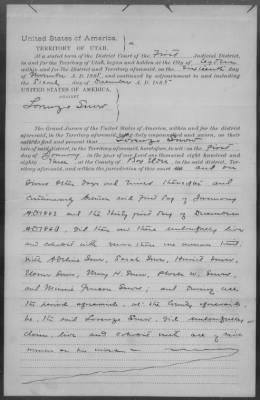 United States of America,
TERRITORY OF UTAH.
At a stated term of the District Court of the First Judicial District,
in and for the Territory of Utah, begun and holden at the City of Ogden
within and for the District and Territory aforesaid, on the day
of November A.D. 1885, and continued by adjournment to and including
the day of December A.D. 1885
UNITED STATES OF AMERICA,
AGAINST
Lorenzo Snow
The Grand Jurors of the United States of America, within and for the district
aforesaid, in the Territory aforesaid, being duly empaneled and sworn, on their
oaths do find and present that Lorenzo Snow
late of said district, in the Territory aforesaid, heretofore, to-wit: on the First
day of January in the year of our Lord one thousand eight hundred and
eighty Three at the County of Box Elder in the said district, Ter-
ritory aforesaid, and within the jurisdiction of this court and on
divers other days and times thereafter and
continuously between said first day of January
AD 1883 and the Thirty first day of December
AD did then and there unlawfully live
and cohabit with more than one woman to wit
with Adaline Snow, Sarah Snow, Harriet Snow,
Eleanor Snow, Mary H. Snow, Phoebe W. Snow,
and Minnie Jensen Snow; and during all
the period aforesaid at the County aforesaid
he the said Lorenzo Snow did unlawfully
claim, live and cohabit with all of said
women as his wives